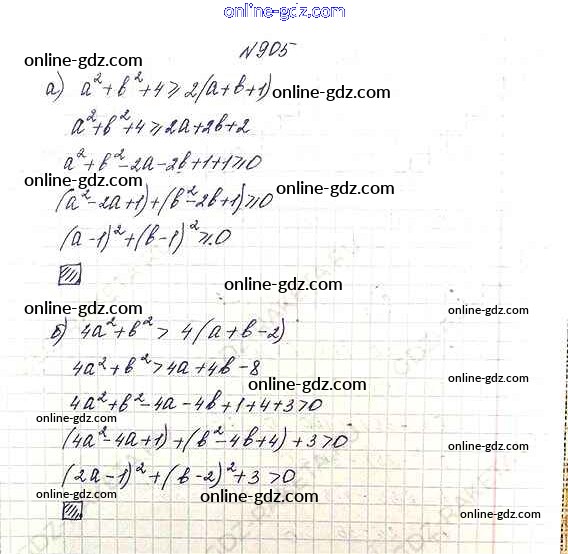 online-gdz.com
№905
online-gdz.com
а) a²+b²+4⩾2(a+b+1)
online-gdz.com
a²+b²+4⩾2a+2b+2
online-gdz.com
a²+b²-2a-2b+1+1⩾0
online-gdz.com
(a²-2a+1)+(b²-2b+1)⩾0
online-gdz.com
(a-1)²+(b-1)²⩾0
online-gdz.com
online-gdz.com
online-gdz.com
б) 4a²+b²>4(a+b-2)
4a²+b²>4a+4b-8
online-gdz.com
online-gdz.com
4a²+b²-4a-4b+1+4+3>0
online-gdz.com
(4a²-4a+1)+(b²-4b+4)+3>0
online-gdz.com
(2a-1)²+(b-2)²+3>0
online-gdz.com
online-gdz.com
online-gdz.com
online-gdz.com